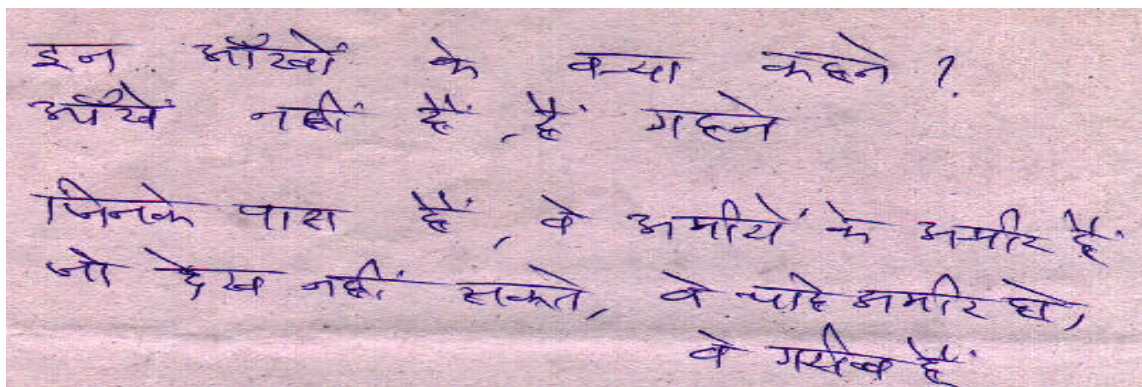 इन आँखों के क्या कहने ?
आँखें नहीं हैं, हैं गहने
जिनके पास हैं, वे अमीरों के अमीर हैं
जो देख नहीं सकते, वे चाहे अमीर हो,
वे गरीब हैं